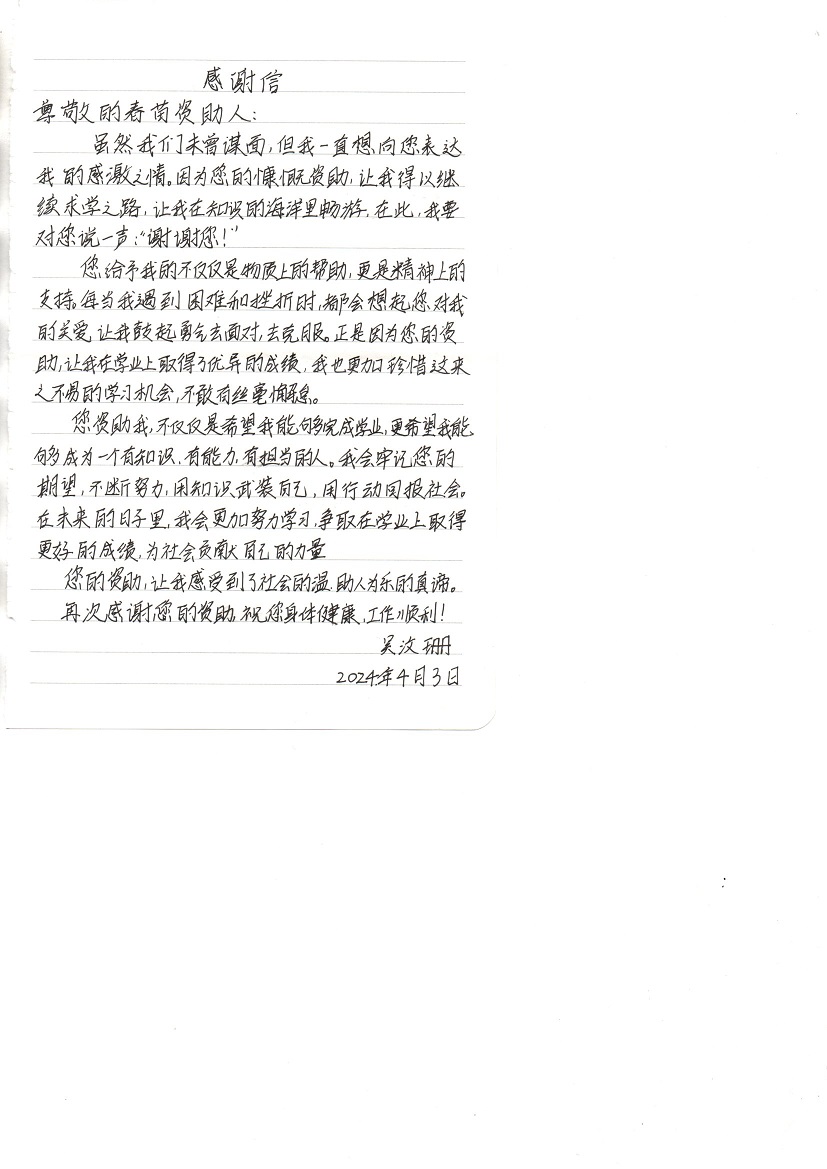 感谢信
尊敬的春苗资助人：
虽然我们未曾谋面，但我一直想向您表达
我的感激之情。因为您的慷慨资助，让我得以继
续求学之路，让我在知识的海洋里畅游，在此，我要
对您说一声：“谢谢您！”
您给予我的不仅仅是物质上的帮助，更是精神上的
支持。每当我遇到困难和挫折时，都会想起您对我
的关爱，让我鼓起勇气去面对，去克服。正是因为您的资
助，让我在学业上取得了优异的成绩，我也更加珍惜这来
之不易的学习机会，不敢有丝毫懈怠。
您资助我，不仅仅是希望我能够完成学业，更希望我能
够成为一个有知识、有能力，有担当的人。我会牢记您的
期望，不断努力，用知识武装自己，用行动回报社会。
在未来的日子里，我会更加努力学习，争取在学业上取得
更好的成绩，为社会贡献自己的力量
您的资助，让我感受到了社会的温，助人为乐的真谛。
再次感谢您的资助，祝您身体健康，工作顺利！
吴汶珊
2024年4月3日